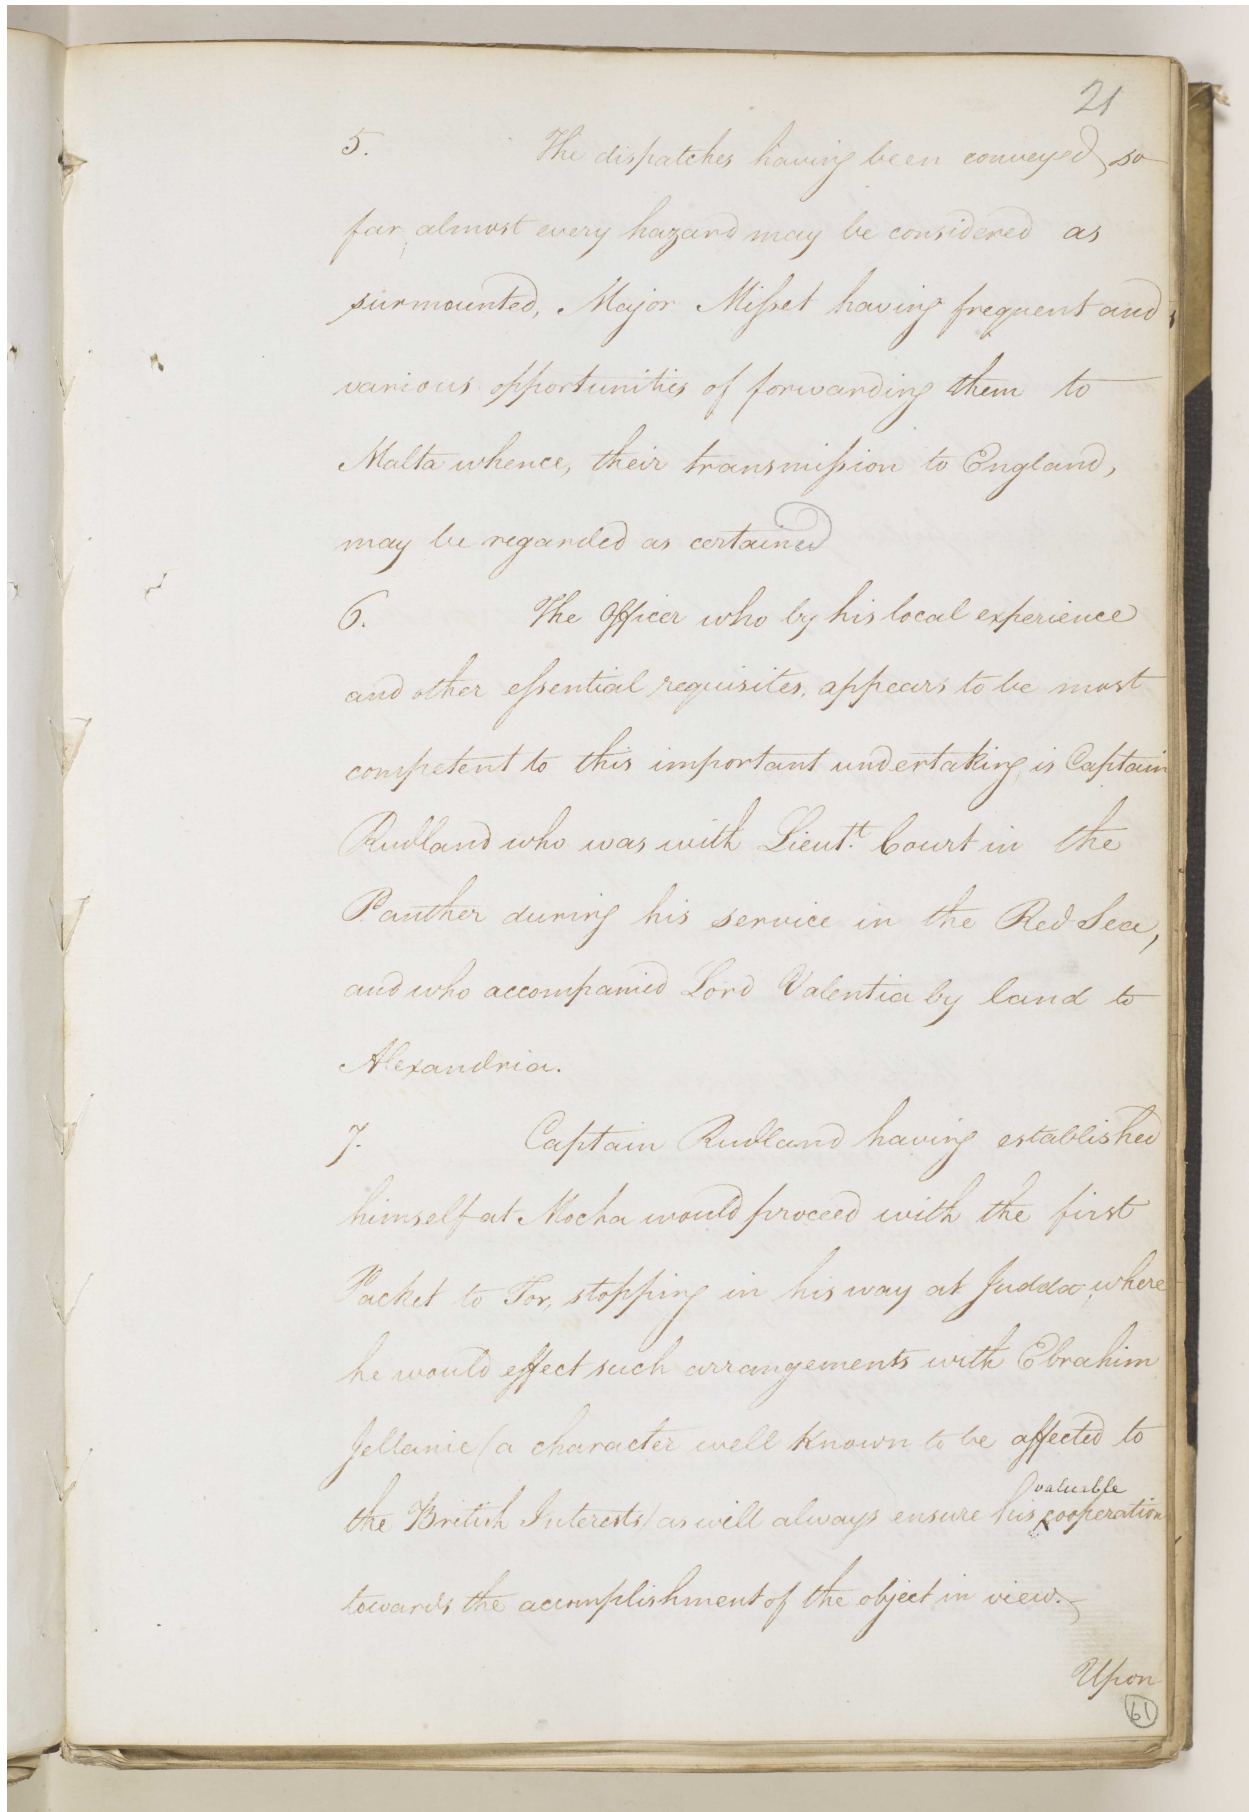 21
5. The dispatches having been conveyed so
far, almost every hazard may be considered as
surmounted, Major Misset having frequent and
various opportunities of forwarding them to
Malta whence, their transmission to England,
may be regarded as certained
6. The Officer who by his local experience
and other essential requisites, appears to be most
competent to this important undertaking is Captain
Rudland who was with Lieut.t Court in the
Panther during his service in the Red Sea,
and who accompanied Lord Valentia by land to
Alexandria.
7. Captain Rudland having established
himself at Mocha would proceed with the first
Packet to Tor, stopping in his way at Judda, where
he would effect such arrangements with Ebrahim
Jellanie (a character well known to be affected to
valuable
the British Interests) as will always ensure his cooperation
towards the accomplishment of the object in view.
Upon
61